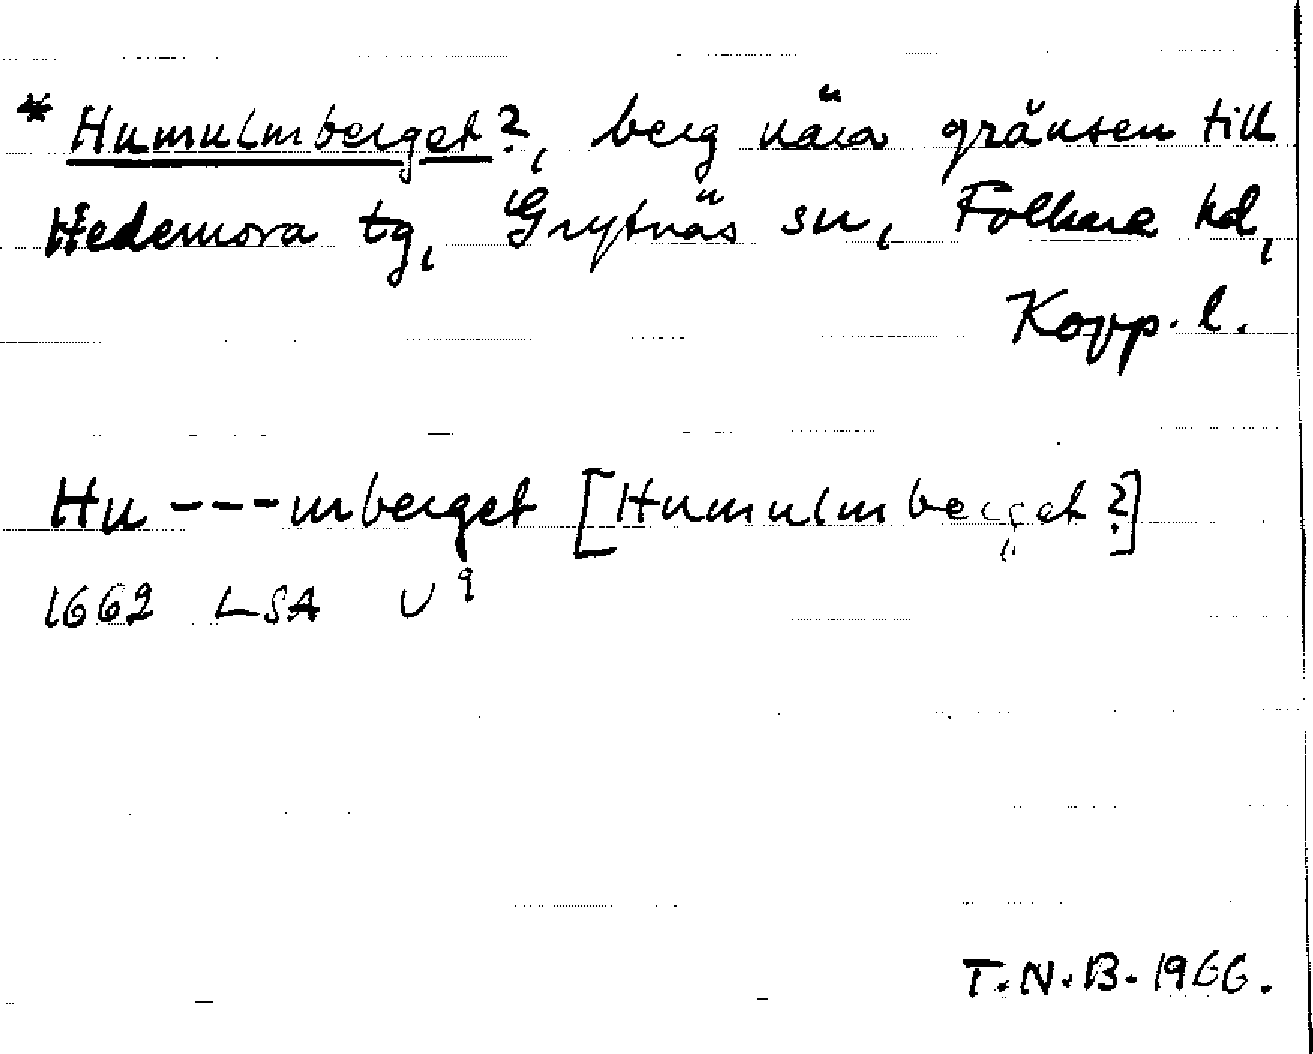 * Humulmberget?, berg nära gränsen till
Hedemora tg, Grytnäs sn, Folkare hd,
Kopp. l.
Hu ---mberget [Humulmberget?]
1662 LSA U9
T.N.B. 1966.